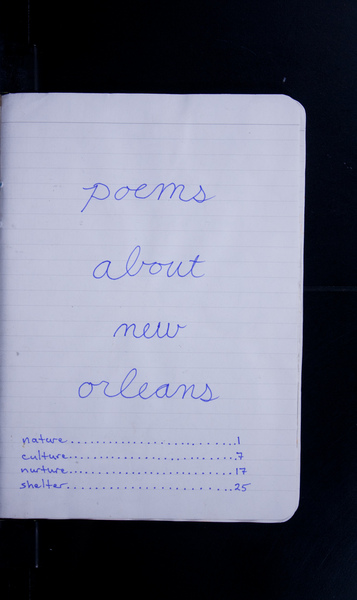 poems
about
new
orleans
nature........................1
culture........................7
nurture........................17
shelter........................25